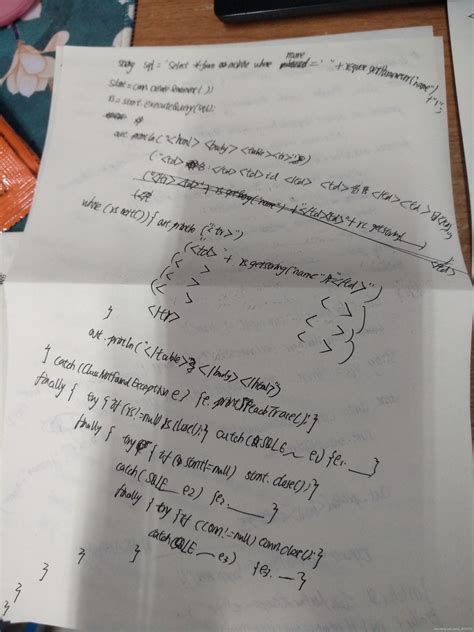 String sql = "Select * from        where name = ' " + request.getParameter("name")
+ " ' ";
Stmt = conn.createStatement( );
rs = stmt.executeQuery(sql);
out.println("<html> <body> <table> <tr>")
("<td>        </td> <td> id </td> <td>        </td> <td>
("<td> <td>" + rs.getString("name") + "</td><td>" + rs.getString(
</td>
while (rs.next()) { out.println ("<tr>")
("<td>" + rs.getString("name") + "</td>")
(<   >        <   >)
(<   >        <   >)
(<   >        <   >)
}   </tr>
out.println("</table> </body> </html>")
} catch(ClassNotFoundException e) {e.printStackTrace();}
finally { try { if (rs!=null) rs.close();} catch(SQLE__ e1) {e1.__}
finally { try { if (stmt!=null) stmt.close();}
catch(SQLE__ e2) {e2.__}
finally { try {if (conn!=null) conn.close();}
catch(SQLE__ e3) {e3.__}
} } } }
}